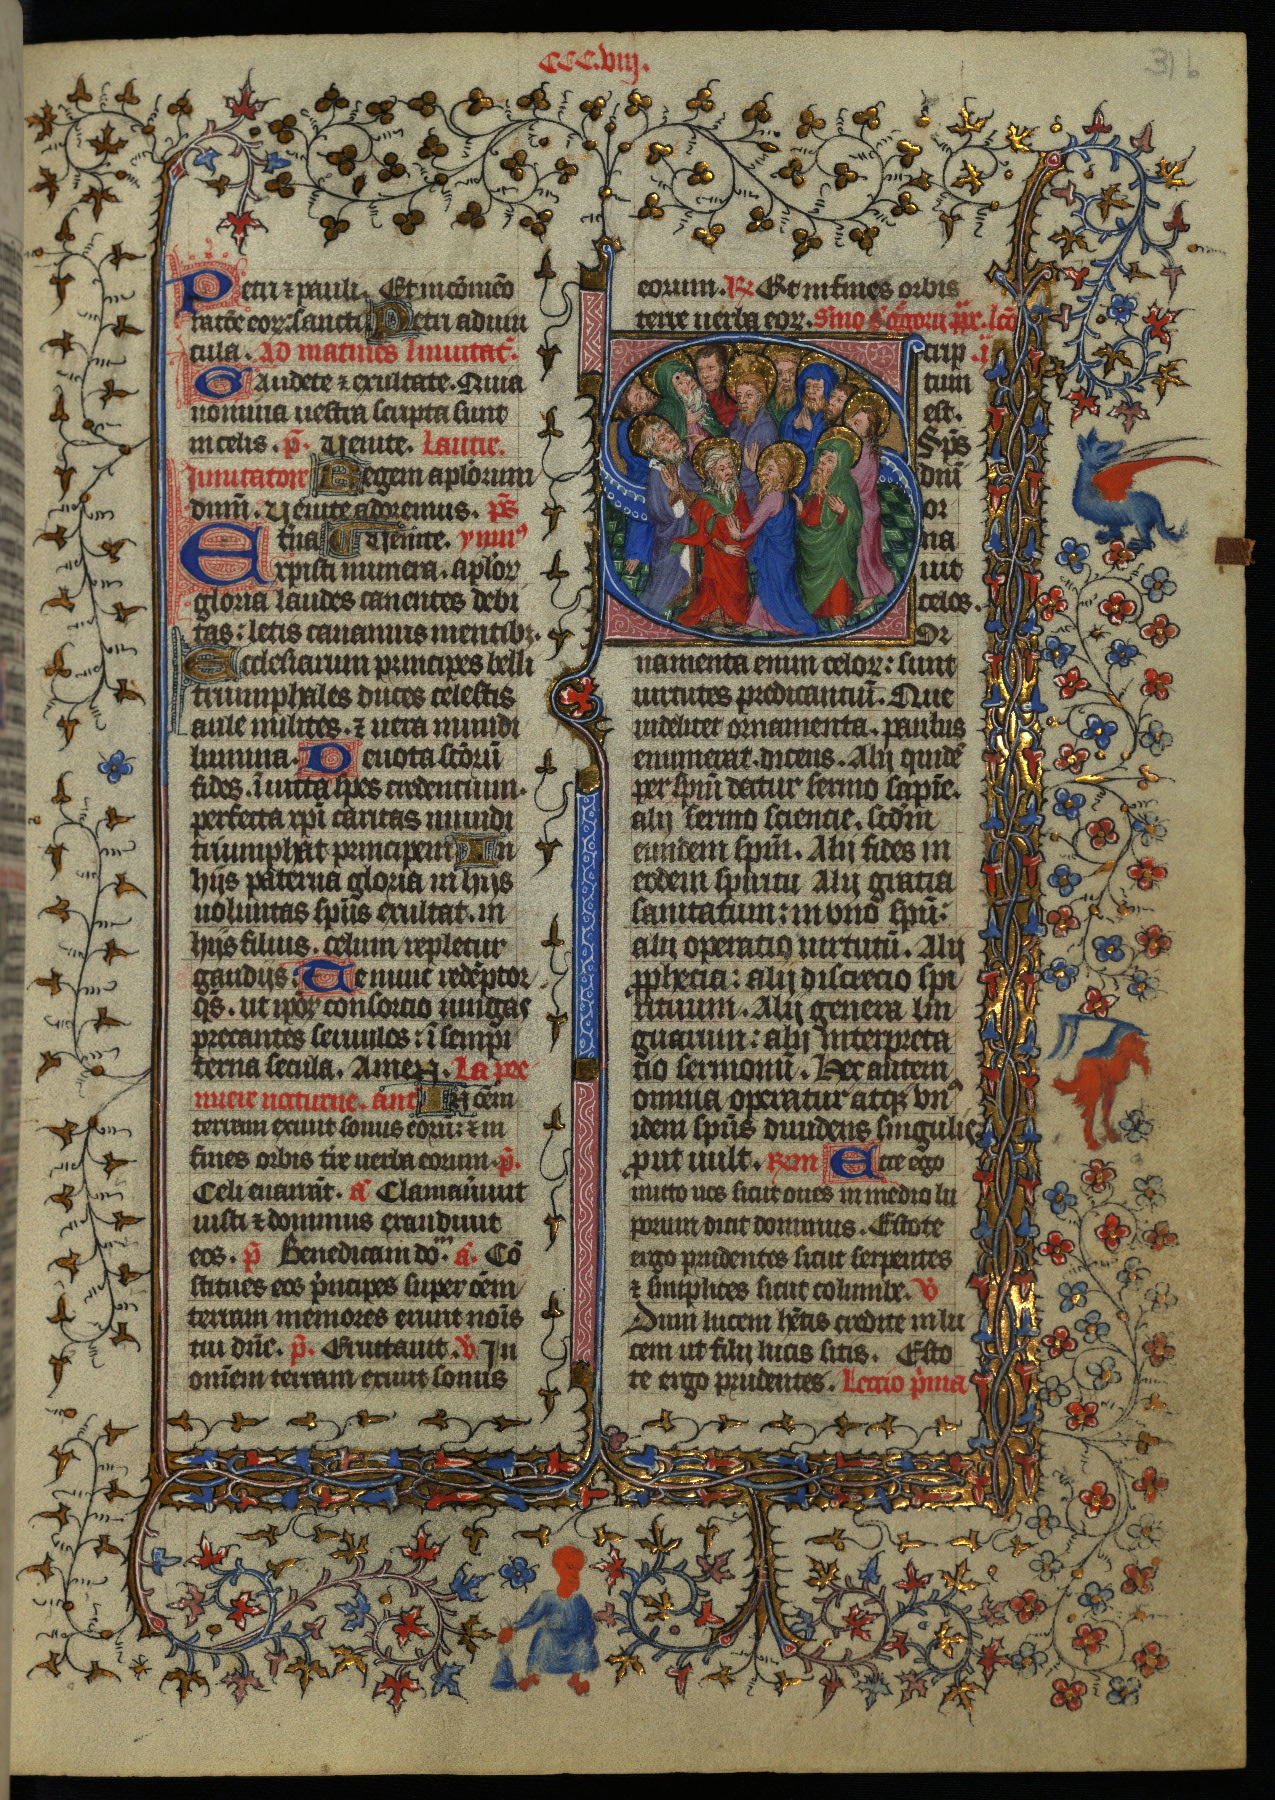 CCC.viij.
316
Petri ⁊ pauli. Et in cōmēo
ratōe eorꝝ. sancti Petri ad uin
cula. Ad matines Inuitat̄.
Gaudete ⁊ exultate. Quia
nomina uestra scripta sunt
in celis. p̄. Uenite. Lautre.
Inuitatore Regem aplorum
dnm̄. Uenite adoremus. ps̄
Et̄na Uenite. ympn̄⁹
xpisti munera. aplorꝝ
gloria laudes canentes debi
tas: letis canamus mentibꝫ.
Ecclesiarum principes belli
triumphales duces celestis
aule milites. ⁊ uera mundi
lumina. Deuota sc̄orū
fides. inuicta spes credentium.
perfecta xpi caritas mundi
triumphat principem In
hijs paterna gloria in hijs
uoluntas spūs exultat. in
hijs filius. celum repletur
gaudijs. Te nunc redēptor
q̄s. ut ipōꝝ consortio iungas
precantes seruulos: ī sempi
terna secula. Amen. La pre
miere nocturne. ant̄ In oēm
terram exiuit sonus eorum: ⁊ in
fines orbis tr̄re uerba eorum. p̄.
Celi enarrāt. a͞ Clamauerūt
iusti ⁊ dominus exaudiuit
eos. p̄ Benedicam dō. a͞. Cō
stitues eos p̄ncipes super oēm
terram memores erunt noīs
tui dn̄e. p̄. Eructauit. v̄ In
omēm terram exiuit sonus
eorum. R Et in fines orbis
terre uerba eorꝝ. Sm̄o s. g̅gorij pp̄e. lcō
Scrip .i.
tum
est.
Spūs
dnī
or
na
uit
celos.
Or
namenta enim celorꝝ: sunt
uirtutes predicantiū. Que
uidelicet ornamenta. paulus
enumerat. dicens. Alij quidē
per spm̄ datur sermo sapīe.
alij sermo sciencie. scd̄m
eundem spm̄. Alij fides in
eodem spiritu Alij gratia
sanitatum: in vno spū:
alij operatio uirtutū. Alij
pphetia: alij discretio spi
rituum. Alij genera lin
guarum: alij interpreta
tio sermonū. Hec autem
omnia operatur atqꝫ vn⁹
idem spūs diuidens singulis
put uult. Rm Ecce ego
mitto uos sicut oues in medio lu
porum dicit dominus. Estote
ergo prudentes sicut serpentes
⁊ simplices sicut columbe. v̄
Dum lucem hētis credite in lu
cem ut filij lucis sitis. Esto
te ergo prudentes. Leccio p̄ma